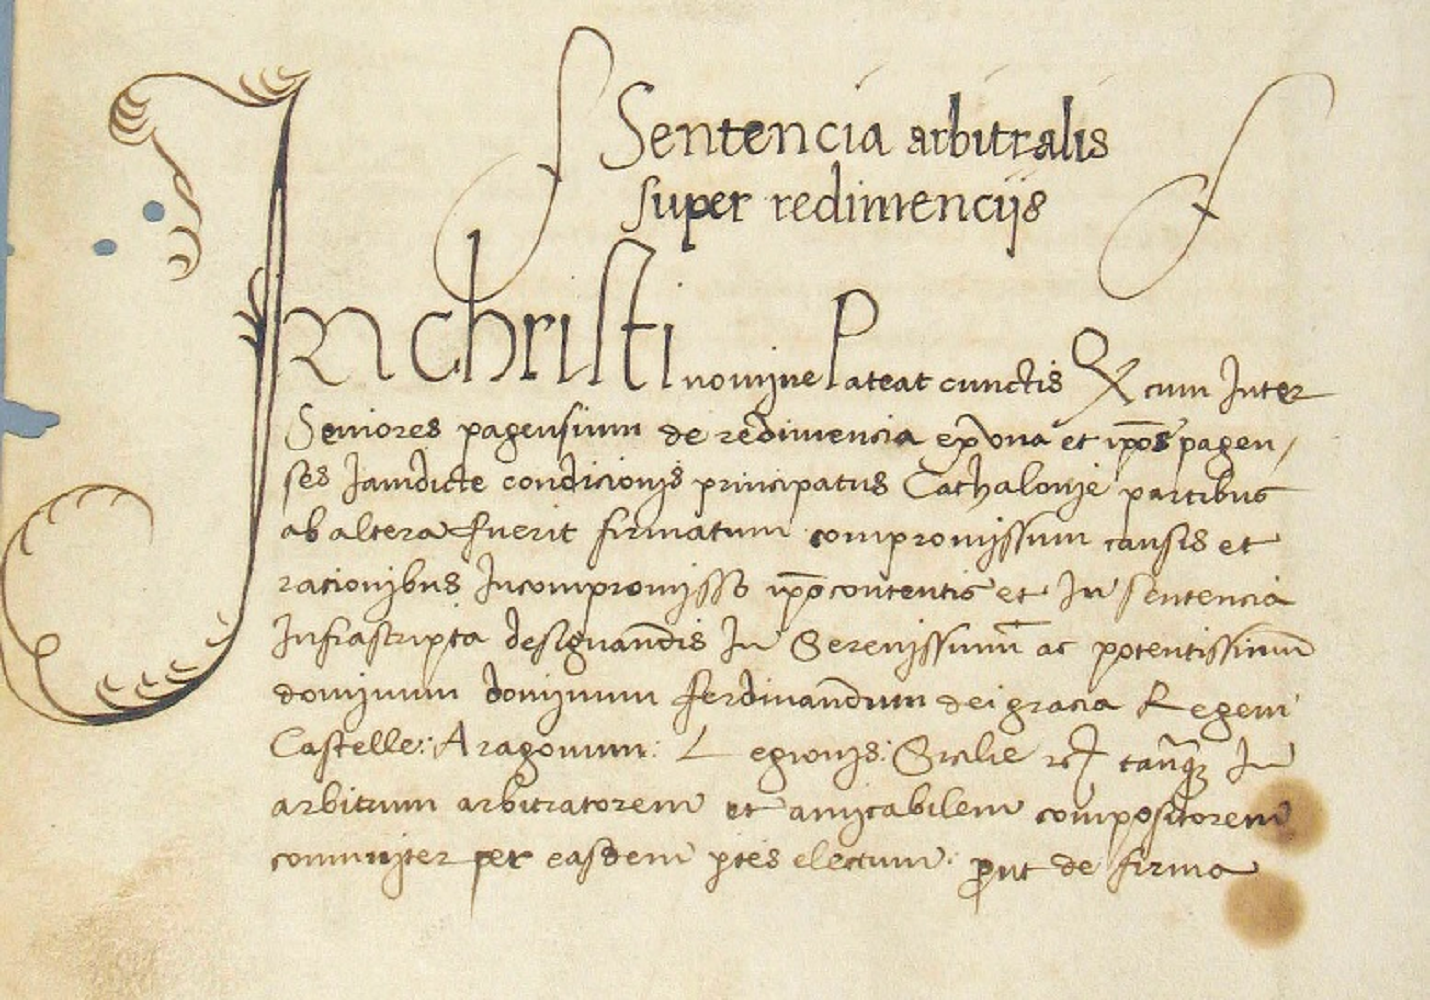 Sentencia arbitralis
super redimencijs
In christi nomine Pateat cunctis Qx cum Inter
Seniores pagensium de redimencia ex vna et ip̄os pagen/
ses Iamdicte condicionis principatus Cathalonie partibus
ab altera fuerit firmatum compromissum causis et
racionibus Incompromisso ip̄o contentis et In sentencia
Infrascripta designandis In Serenissimū ac potentissimū
dominum dominum ferdinandum dei gracia Regem
Castelle: Aragonum: Legionis: Sicilie tanq̄ In
arbitrum arbitratorem et amicabilem compositorem
comuniter per easdem ptes electum: put de firma